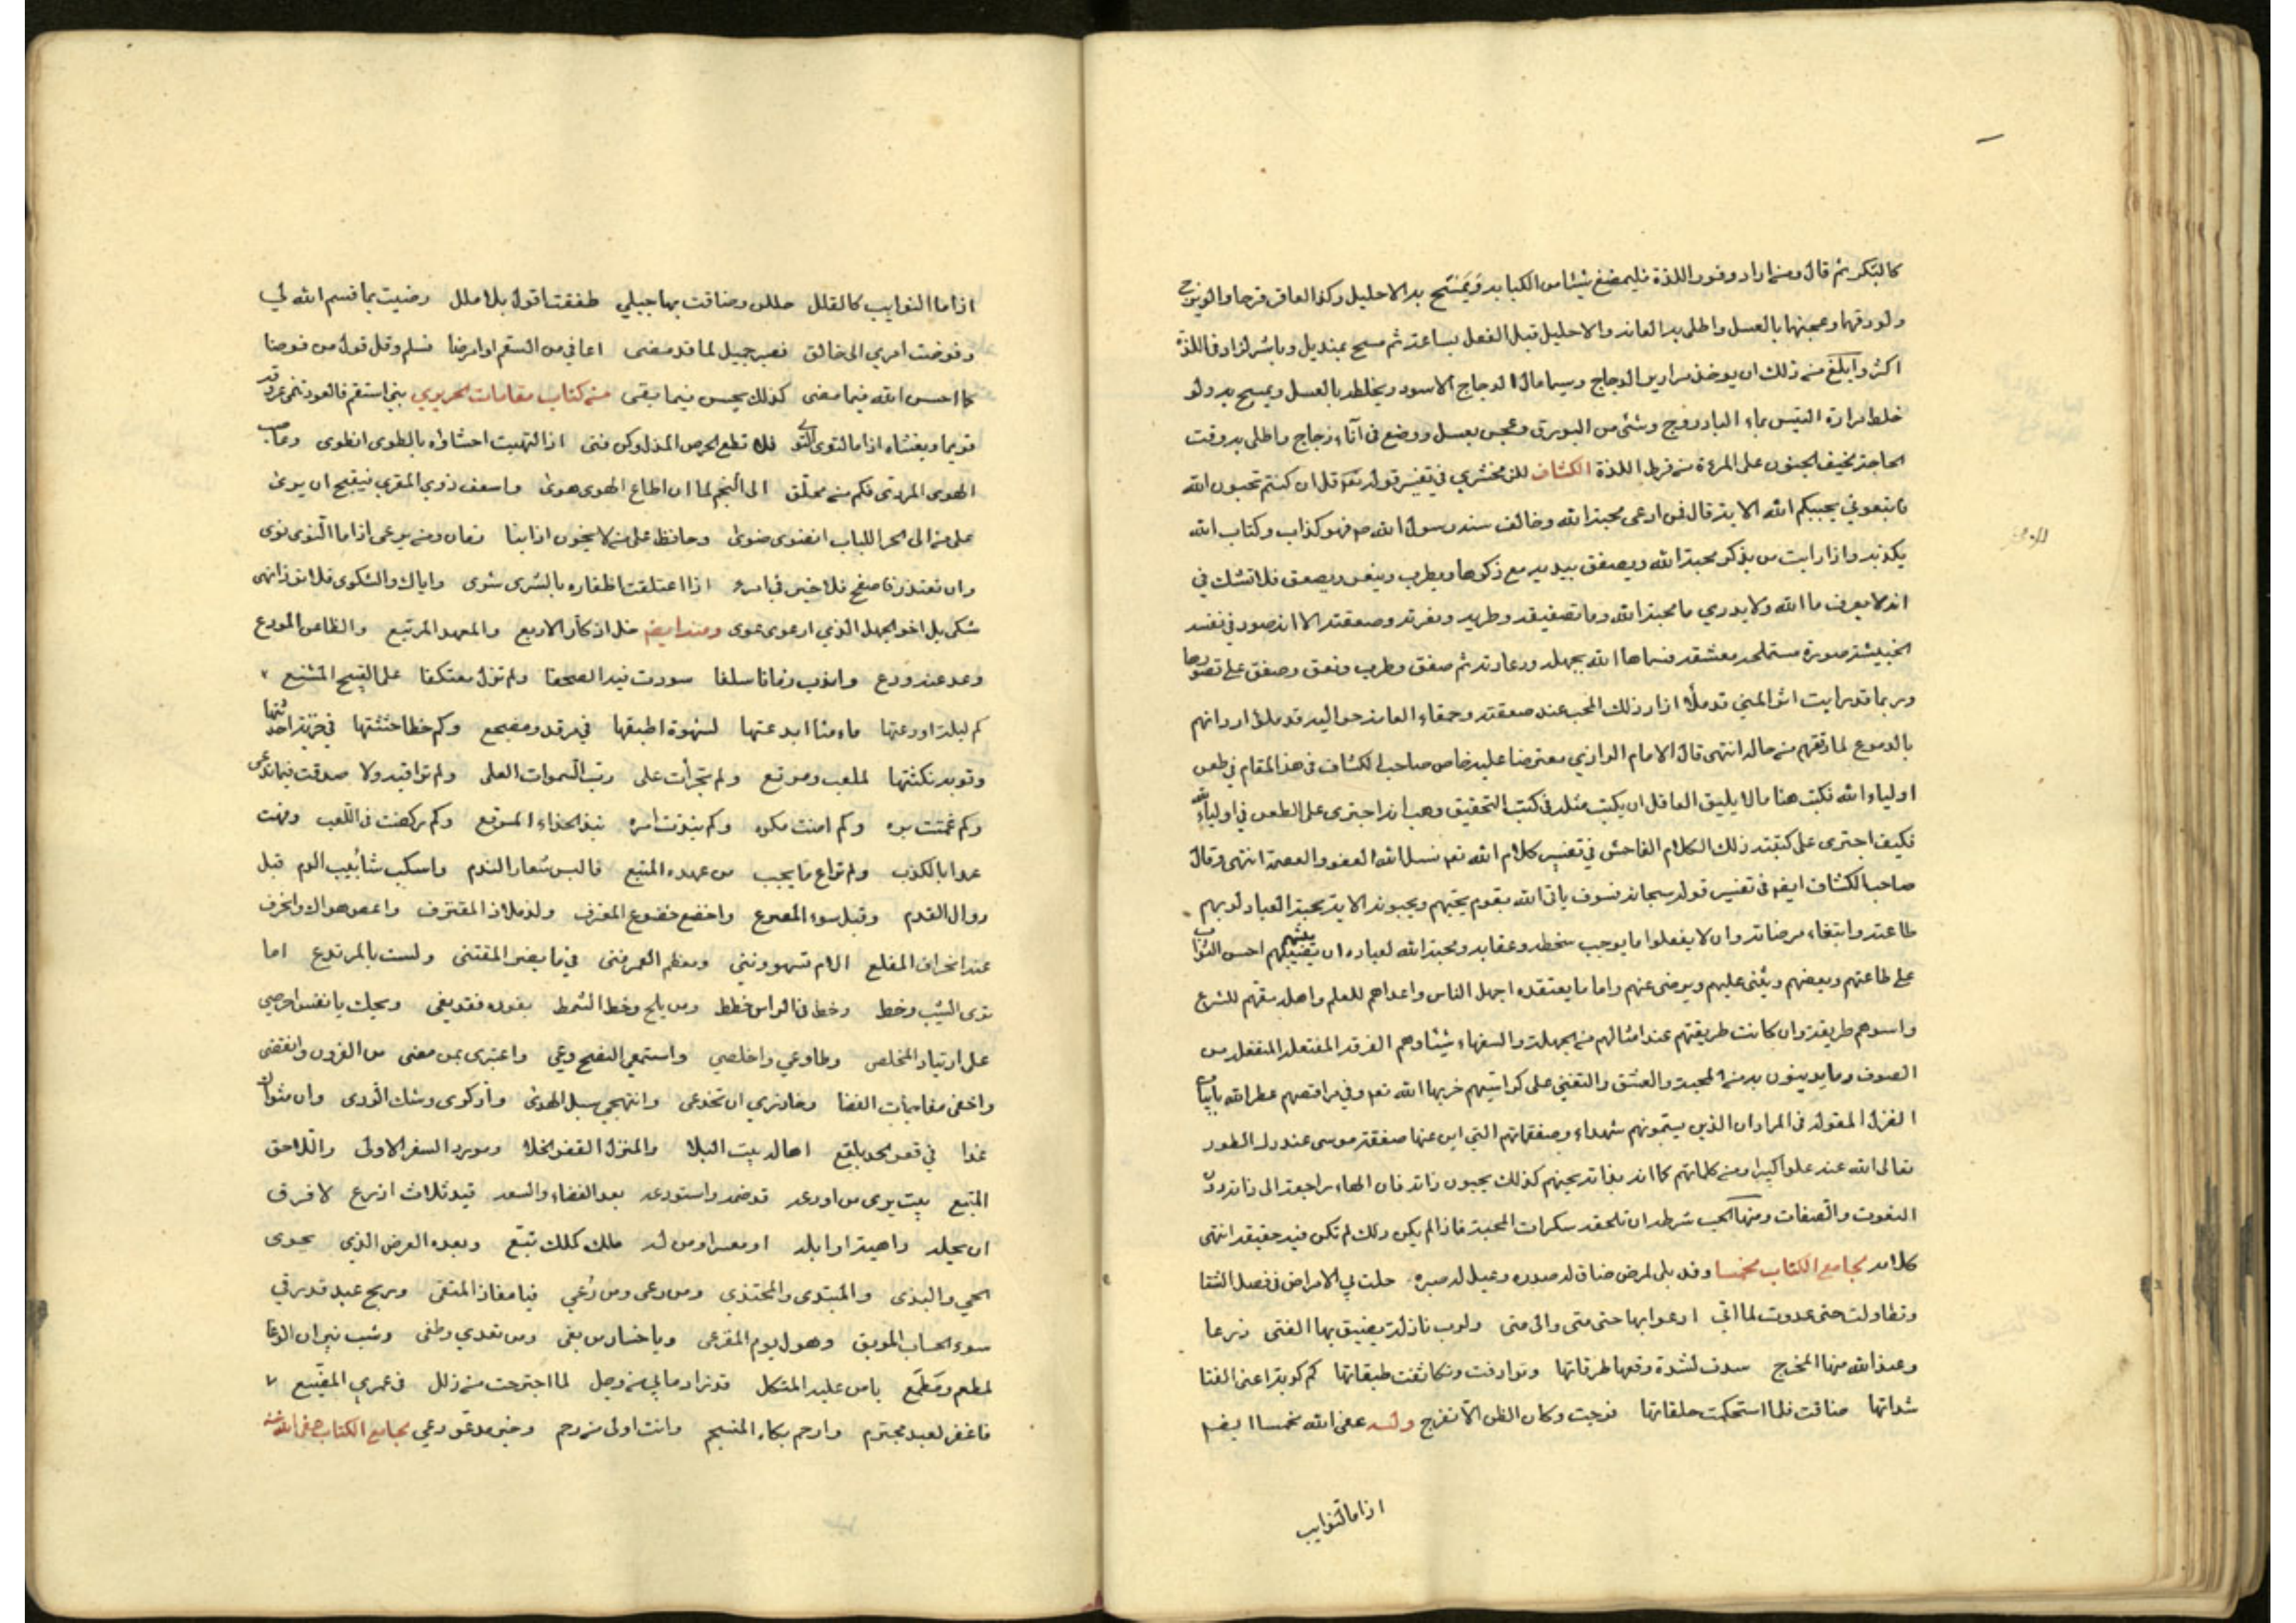 كالبكر ثم قال ومن اراد وفور اللذة فليمضغ شيئا من الكبابه ويمسح به الاحليل وكذا العاقر قرحا والزنجبيل
ولو دقها وعجنها بالعسل واطلى به العانه والاحليل قبل الفعل بساعة ثم مسح بمنديل وباشر لزاد في اللذة
اكثر وابلغ من ذلك ان يوخذ مراير الدجاج وسيما مال الدجاج الاسود ويخلطه بالعسل ويمسح به ولو
خلط مرارة التيس بماء البادروج وشئ من البورق وعجن بعسل ووضع في اناء زجاج واطلى به وقت
الحاجة يخيف الجنون على المرءة من فرط اللذة الكشاف للزمخشري في تفسير قوله تعه قل ان كنتم تحبون الله
فاتبعوني يحببكم الله الاية قال فمن ادعى محبة الله وخالف سنة رسول الله صم فهو كذاب وكتاب الله
يكذبه واذا رايت من يذكر محبة الله ويصفق بيديه مع ذكرها ويطرب وينعر ويصعق فلا تشك في
انه لا يعرف ما الله ولا يدري ما محبة الله وما تصفيقه وطربه ونعرته وصعقته الا انه صور في نفسه
الخبيثة صورة مستملحة معشقة فسماها الله بجهله ودعارته ثم صفق وطرب ونعق وصعق على تصورها
وربما قد رايت اثر المني قد ملأ ازار ذلك المحب عند صعقته وحمقاء العامة حواليه قد ملؤ اردانهم
بالدموع لما رققهم من حاله انتهى قال الامام الرازي معترضا عليه خاض صاحب الكشاف في هذا المقام في طعن
اولياء الله فكتب هنا مالا يليق العاقل ان يكتب مثله في كتب التحقيق وهب انه اجترى على الطعن في اولياء الله
فكيف اجترى على كتبته ذلك الكلام الفاحش في تفسير كلام الله تعه نسال الله العفو والعصمة انتهى وقال
صاحب الكشاف ايضه في تفسير قوله سبحانه فسوف ياتي الله بقوم يحبهم ويحبونه الاية محبة العباد لربهم
طاعته وابتغاء مرضاته وان لا يفعلوا ما يوجب سخطه وعقابه ومحبة الله لعباده ان يثيبهم احسن الثواب
على طاعتهم ويعضهم ويثني عليهم ويرضى عنهم واما ما يعتقده اجهل الناس واعداهم للعلم واهله مقتهم للشرع
واسوهم طريقة وان كانت طريقتهم عند امثالهم من الجهلة والسفهاء شيئا وهم الفرقة المفتعلة المنفعلة من
الصوف وما يدينون به من المحبة والعشق والتغني على كراسيهم خربها الله تعه وفي مراقصهم عطلها الله بابيات
الغزل المقولة في المردان الذين يسمونهم شهداء وصعقاتهم التي اين عنها صعقة موسى عند دك الطور
تعالى الله عنه علوا كبيرا ومن كلماتهم كما انه بذاته يحبهم كذلك يحبون ذاته فان الهاء راجعة الى ذاته دون
النعوت والصفات ومنها الحب شرطه ان تلحقه سكرات المحبة فاذا لم يكن ذلك لم تكن فيه حقيقة انتهى
كلامه لجامع الكتاب مخمسا وقد بلى لمرض ضاق له صدره وعيل له صبره حلت بي الامراض في فصل الشتا
وتطاولت حتى عدوت لما اتى ادعوا بها حتى متى والى متى ولرب نازلة يضيق بها الفتى ذرعا
وعند الله منها المخرج سدف لشدة وقعها طرقاتها وترادفت وتكاثفت طبقاتها كم كربة اعنى الفتا
شداتها ضاقت فلما استحكمت حلقاتها فرجت وكان الظن الا تفرج وله عفى الله مخمسا ايضه
اذا ما النوايب
اذا ما النوايب كالقلل حللن وضاقت بها جبلي طفقت اقول بلا ملل رضيت بما قسم الله لي
وفوضت امري الى خالق فصبر جميل لما قد مضى اعافي من السقم او امرضا فسلم وقل قول من فوضا
كما احسن الله فيما مضى كذلك يحسن فيما بقى من كتاب مقامات الحريري بني استقم فالعود تنمى عروقه
قويما ويغشاه اذا ما التوى التوى فلا تطع الحرص المذل وكن فتى اذا التهبت احشاؤه بالطوى انطوى وعاص
الهوى المردى فكم من محلق الى النجم لما ان اطاع الهوى هوى واسعف ذوي القربى فيقبح ان يرى
على من الى الحر اللباب انضوى ضوى وحافظ على من لا يخون اذا نبا زمان ومن يرعى اذا ما النوى نوى
وان تقتدر فاصفح فلا خير في امرء اذا اعتلقت اظفاره بالشوى شوى واياك والشكوى فلا تر ذا نهى
شكى بل اخو الجهل الذي ارعوى عوى ومنه ايضه خل اذكار الاربع والمعهد المرتبع والظاعن المودع
وعد عنه ودع واندب زمانا سلفا سودت فيه الصحفا ولم تزل معتكفا على القبيح الشنع
كم ليلة اودعتها ماءثما ابدعتها لشهوة اطعتها في مرقد ومضجع وكم خطا حثثتها في خزية احدثتها
وتوبة نكثتها لملعب ومرتع ولم تجرأت على رب السموات العلى ولم تراقبه ولا صدقت فيما تدعى
وكم غمصت بره وكم امنت مكره وكم نبذت امره نبذ الحذاء المرقع وكم ركضت في اللعب وفهت
عمدا بالكذب ولم تراع ما يجب من عهده المتبع فالبس شعار الندم واسكب شآبيب الدم قبل
زوال القدم وقبل سوء المصرع واخضع خضوع المعترف ولذ ملاذ المقترف واعص هواك وانحرف
عنه انحراف المقلع الام تسهو وتني ومعظم العمر فني في ما يضر المقتني ولست بالمرتدع اما
ترى الشيب وخط وخط في الراس خطط ومن يلح وخط الشمط بفوده فقد نعي ويحك يا نفس احرصي
على ارتياد المخلص وطاوعي واخلصي واستمعي النصح وعي واعتبري بمن مضى من القرون وانقضى
واخشي مفاجات القضا وحاذري ان تخدعي وانتهجي سبل الهدى وادكري وشك الردى وان مثواك
غدا في قعر لحد بلقع اها له بيت البلا والمنزل القفر الخلا ومورد السفر الاولى واللاحق
المتبع بيت يرى من اودعه قد ضمه واستودعه بعد الفضاء والسعه قيد ثلاث اذرع لا فرق
ان يحله داهية او ابله او معسر او من له ملك كملك تبع وبعده العرض الذي يحوى
الحيي والبذى والمبتدى والمحتذي ومن رعى ومن رعي فيا مفاز المتقى وربح عبد قد وقي
سوء الحساب الموبق وهول يوم الفزع ويا خسار من بغى ومن تعدي وطغى وشب نيران الوغا
لمطعم ومطمع يا من عليه المتكل قد زاد ما بي من وجل لما اجترحت من زلل في عمري المضيع
فاغفر لعبد مجترم وارحم بكاه المنسجم وانت اولى من رحم وخير مدعو دعي لجامع الكتاب عفى الله عنه